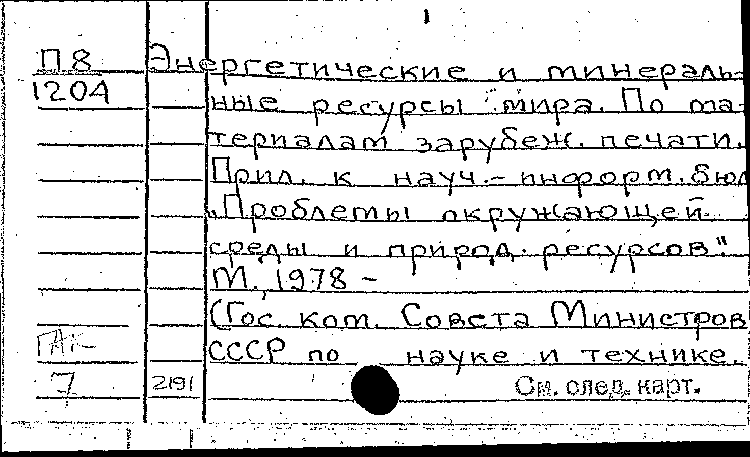 1
П8 Энергетические и минераль-
1204 ные ресурсы мира. По ма-
териалам зарубеж. печати.
Прил. к науч.-информ. бюл
"Проблемы окружающей
среды и природ. ресурсов".
М., 1978 -
(Гос. ком. Совета Министров
ГАК СССР по науке и технике.
7 2191 См. след. карт.